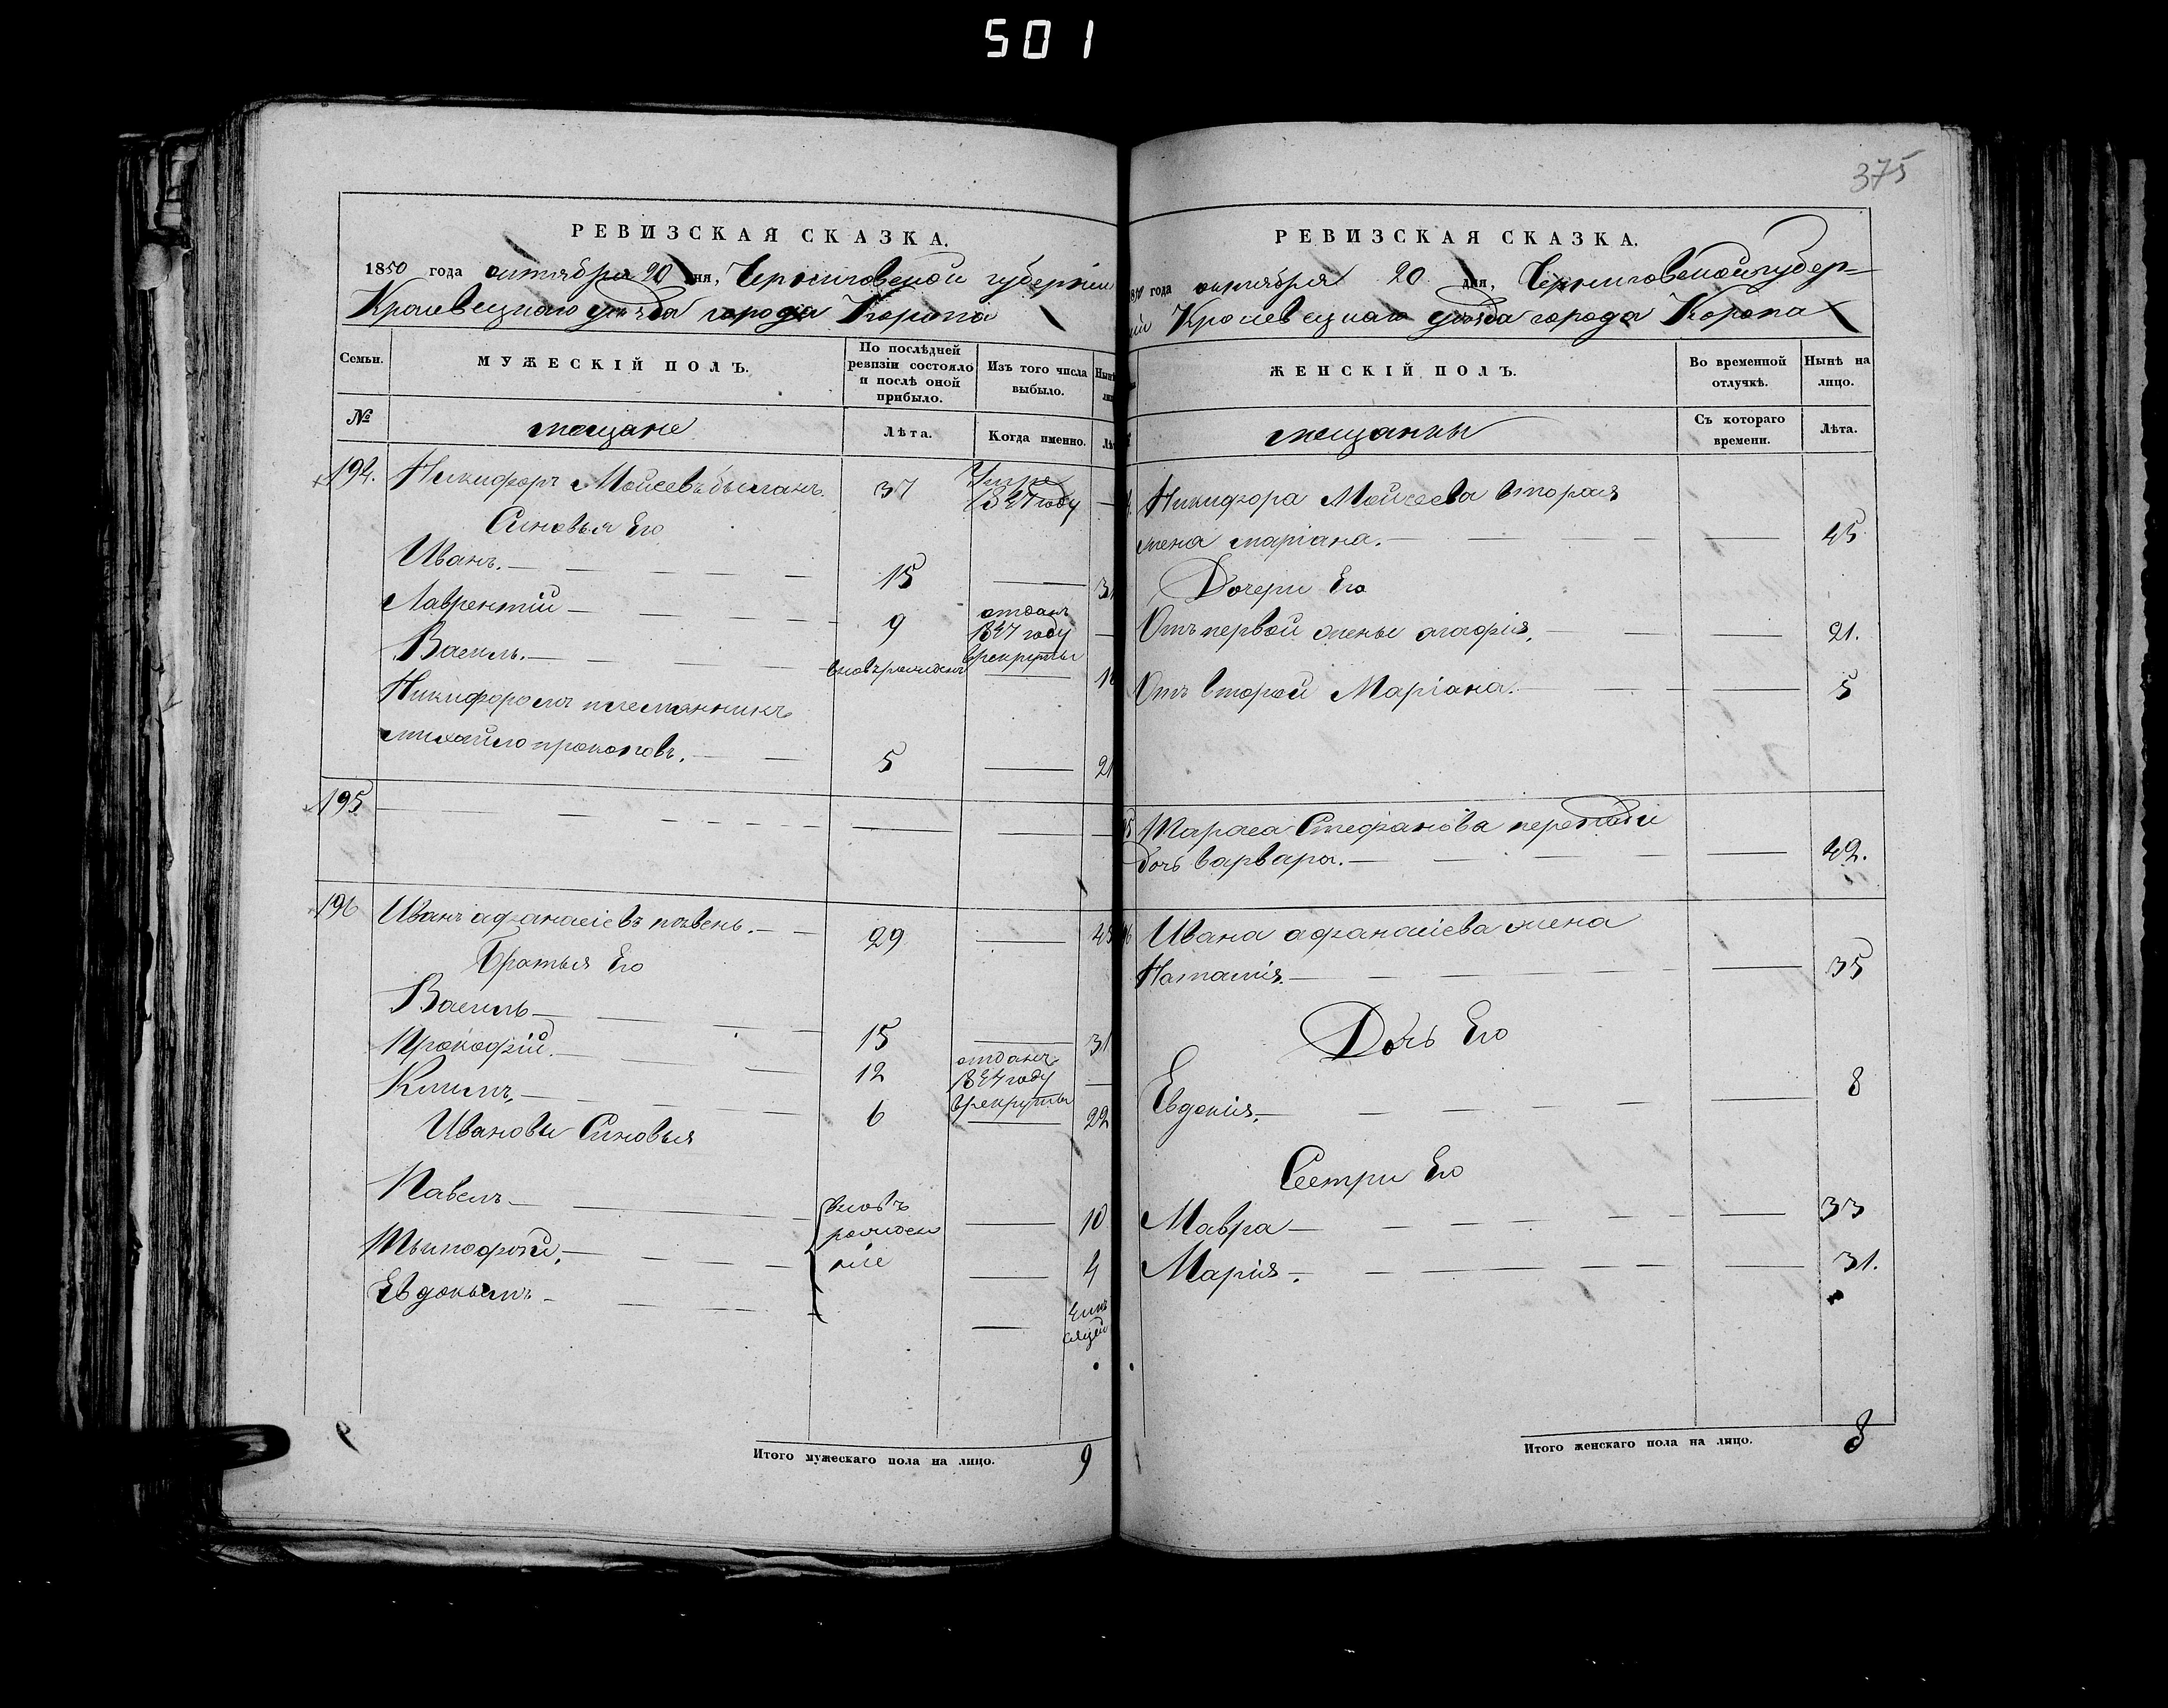 501
375
РЕВИЗСКАЯ СКАЗКА.
1850 года октября 20 дня, Черниговской губернии
Кролевецкаго уезда города Коропа
Семьи.
МУЖЕСКІЙ ПОЛЪ.
По послѣдней ревизіи состояло и послѣ оной прибыло.
Изъ того числа выбыло.
№
мещане
Лѣта.
Когда именно.
194. Никифоръ Моисеевъ 37 Умре 1847 году
Синовья Его
Иванъ. 15
Лаврентій 9 отданъ 1847 году в рекруты
Василь. вновь рожденъ
Никифоровъ племянникъ
михайло прокоповъ. 5 21
195
196 Иванъ афанасіевъ пѣвень. 29 45
Братья Его
Василь 15 31
Прокофій. 12 отданъ 1844 году в рекруты
Климъ, 6 22
Ивановы Синовья
Павелъ 10
вновь рожденніе
4
Евдокимъ
Итого мужескаго пола на лицо. 9
РЕВИЗСКАЯ СКАЗКА.
1850 года октября 20 дня, Черниговской губер=
ніи Кролевецкаго уезда города Коропа
ЖЕНСКІЙ ПОЛЪ.
Во временной отлучкѣ.
Нынѣ на лицо.
мещанки
Съ котораго времени.
Лѣта.
Никифора Моисеева вторая
жена маріана. 45
Дочери Его
Отъ первой жены агафія, 21.
Отъ второй Маріана. 5
Тараса Стефанова
дочь варвара. 42.
Ивана афанасіева жена
Наталія. 35
Дочь Его
Евдокія, 8
Сестри Его
Мавра 33
Марія. 31.
Итого женскаго пола на лицо. 8